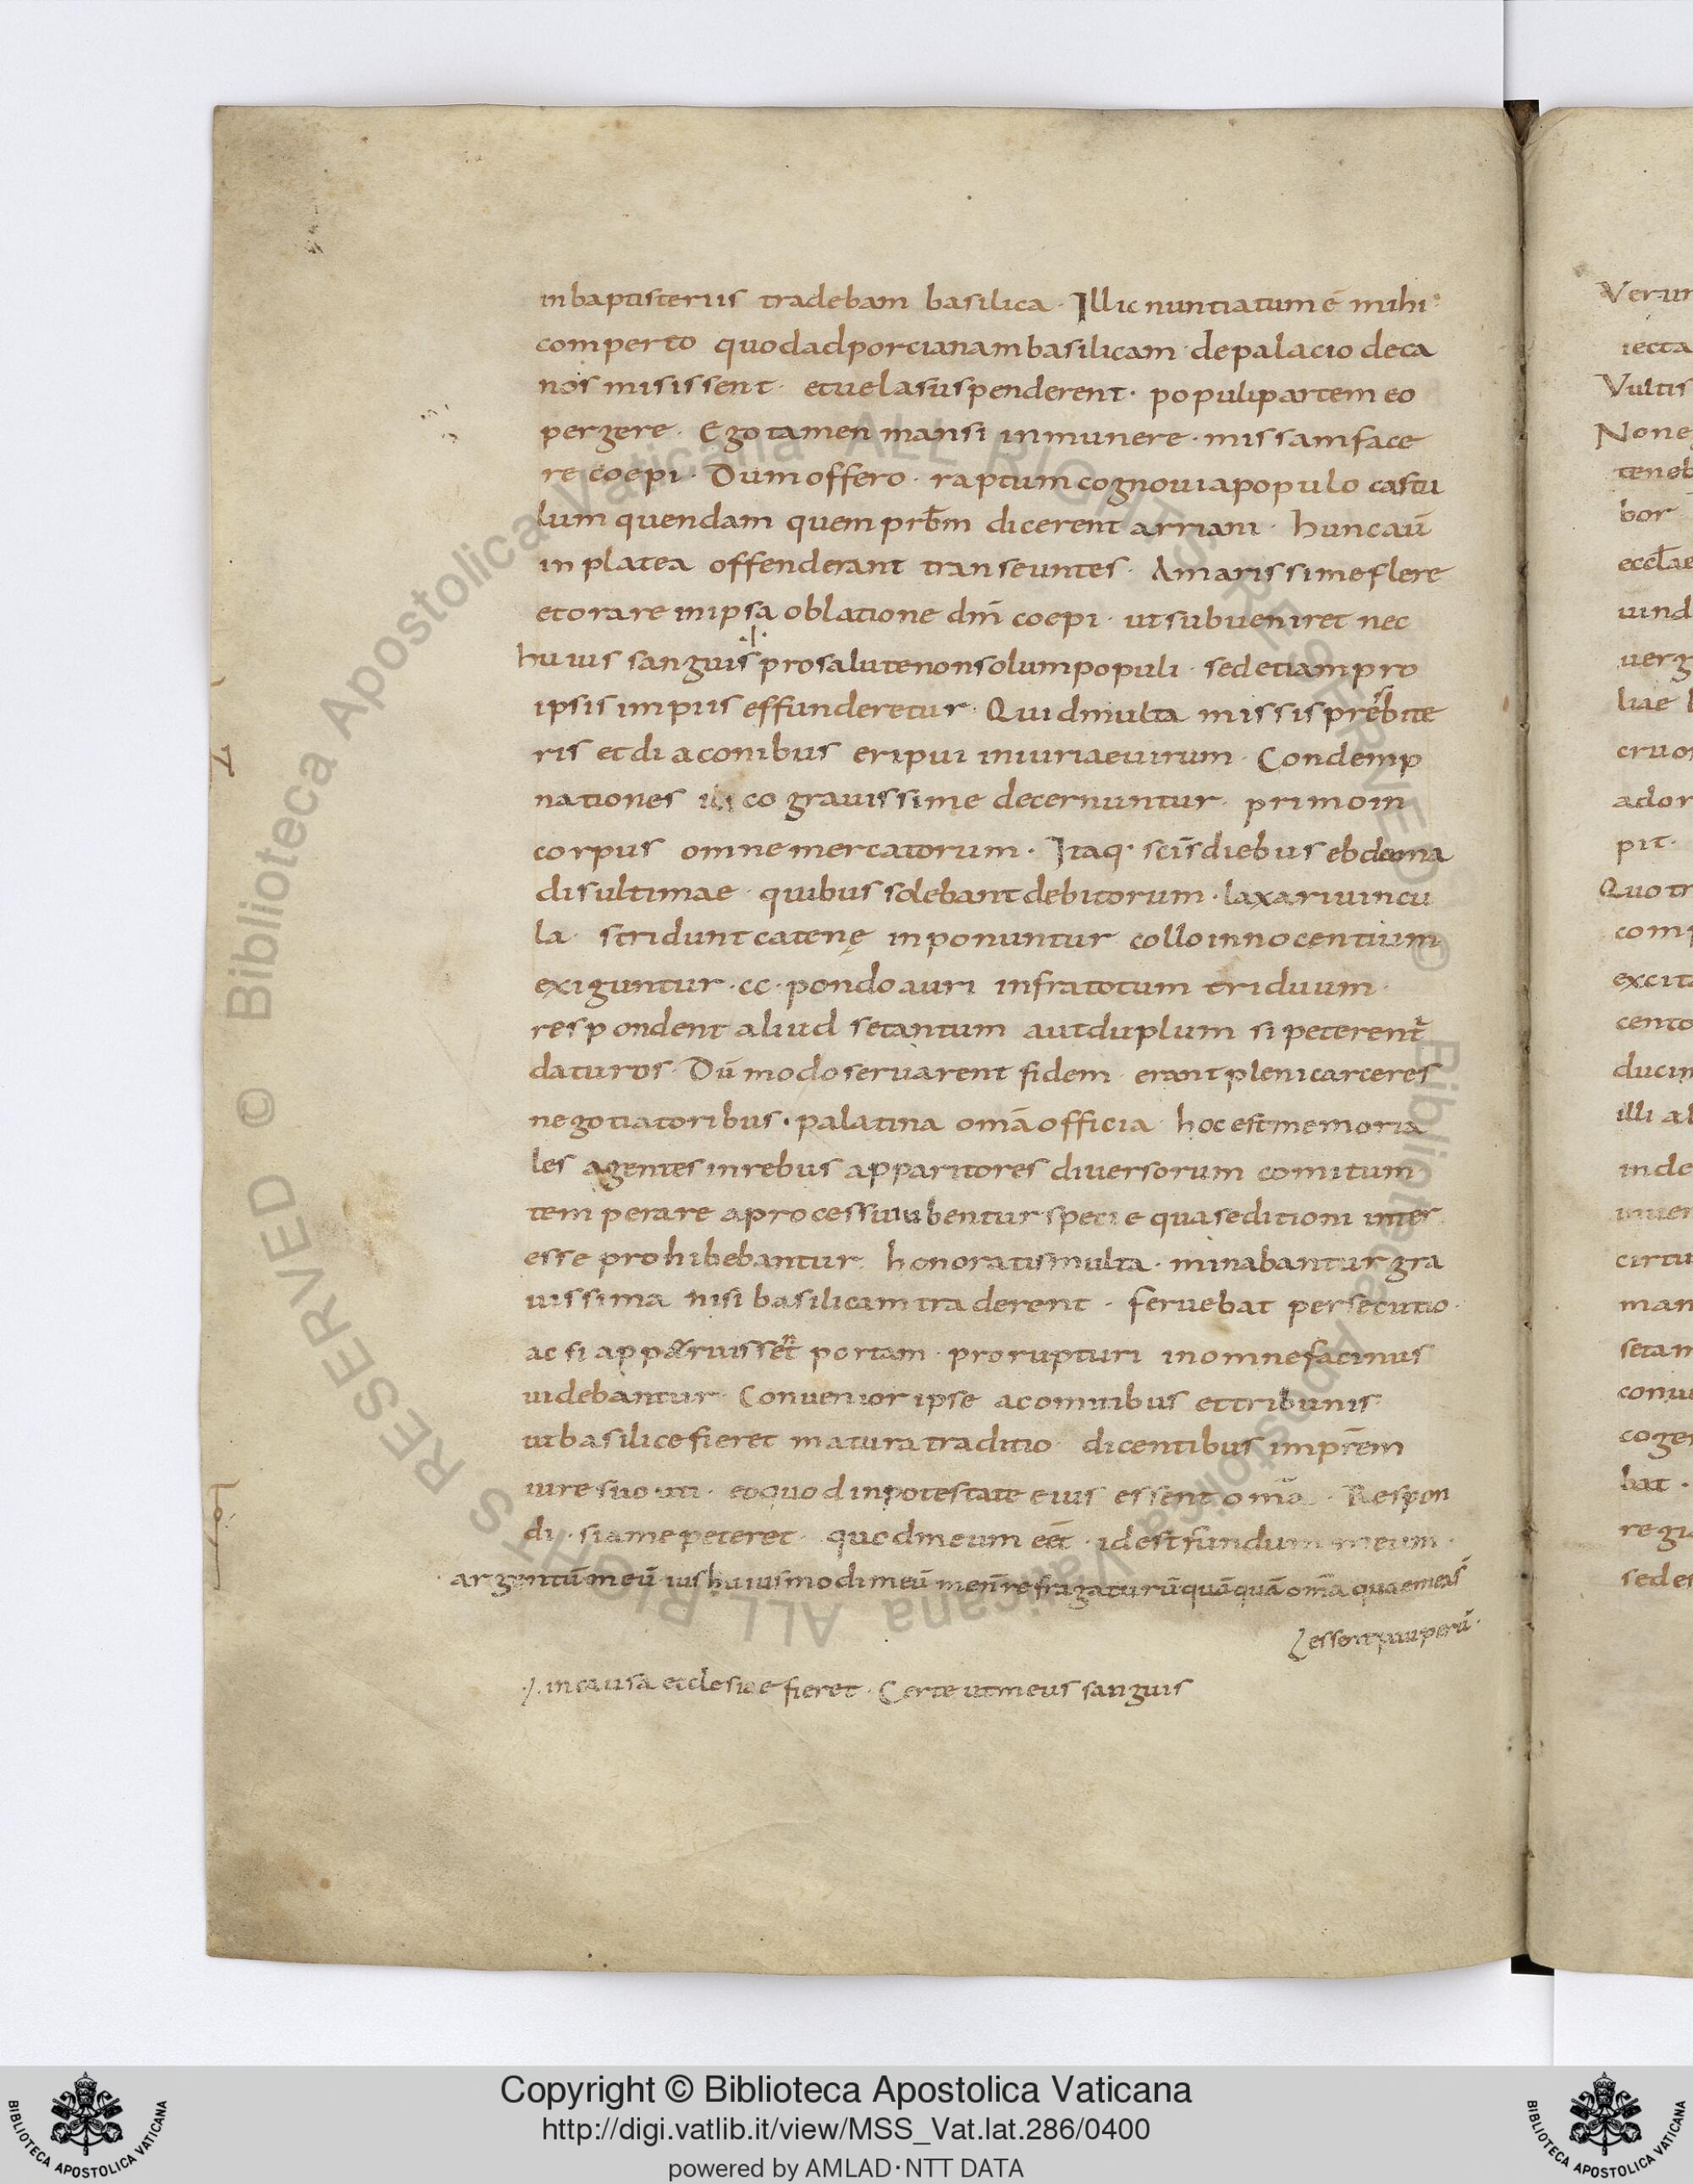 in baptisteriis tradebam basilica · Illic nuntiatum ē mihi
comperto quod ad porcianam basilicam · de palacio deca
nos misissent · et uela suspenderent · populi partem eo
pergere · Ego tamen mansi in munere · missam face
re coepi · Dum offero · raptum cognoui a populo castu
lum quendam quem prb̄m dicerent arriani · hunc aū
in platea offenderant transeuntes · Amarissime flere
et orare in ipsa oblatione dn̄i coepi · ut subueniret nec
huius sanguis ·/· pro salute non solum populi · sed etiam pro
ipsis impiis effunderetur · Quid multa missis presbite
ris et diaconibus eripui iniuriae uirum · Condemp
nationes ilico grauissime decernuntur · primo in
corpus omne mercatorum · Itaq· sc̄is diebus ebdoma
dis ultimae · quibus solebant debitorum · laxari uincu
la · stridunt catenę inponuntur collo innocentium
exiguntur · cc · pondo auri infra totum triduum ·
respondent aliud se tantum aut duplum si peterent᷑
daturos · Dū modo seruarent fidem · erant pleni carceres
negotiatoribus · palatina om̄a officia · hoc est memoria
les agentes in rebus apparitores diuersorum comitum
temperare a processu iubentur specie qua seditioni inter
esse prohibebantur · honoratis multa · minabantur gra
uissima nisi basilicam traderent · feruebat persecutio ·
ac si apparuissent portam · prorupturi in omne facinus
uidebantur · Conuenior ipse a comitibus et tribunis
ut basilice fieret matura traditio · dicentibus impr̄em
iure suo uti · eo quod in potestate eius essent om̄a · Respon
di · si a me peteret · quod meum eēt · id est fundum meum ·
· argentū meū ius huiusmodi meū me n̄ refragaturū quāquā om̄a quae mea s̄
essent pauperū ·
·/· in causa ecclesiae fieret · Certe ut meus sanguis
Verum
iecta
Vultis
Non e
teneb
bor
eccl̄ae
uind
uerg
liae
cruor
ador
pit ·
Quo tr
comp
excita
cento
ducin
illi al
inde
uiuer
circu
man
se tam
conui
coger
bat ·
regi
sed e
© Biblioteca Apostolica Vaticana ALL RIGHTS RESERVED © Biblioteca Apostolica Vaticana ALL RIGHTS RESERVED
Copyright © Biblioteca Apostolica Vaticana
http://digi.vatlib.it/view/MSS_Vat.lat.286/0400
powered by AMLAD·NTT DATA
BIBLIOTECA APOSTOLICA VATICANA
BIBLIOTECA APOSTOLICA VATICANA